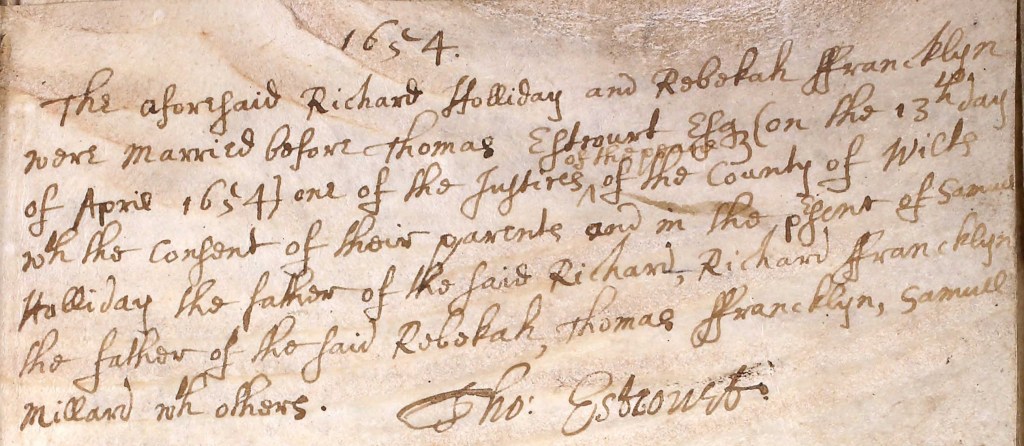 1654.
The aforesaid Richard Holliday and Rebekah Ffrancklyn
were Married before Thomas Estcourt Esq (on the 13th day
of April 1654) one of the Justices of the peace of the County of Wilts
wth the Consent of their parents and in the psent of Samuell
Holliday the father of the said Richard, Richard Ffrancklyn
the father of the said Rebekah, Thomas Ffrancklyn, Samuell
Millard wth others.
Tho: Estcourt.